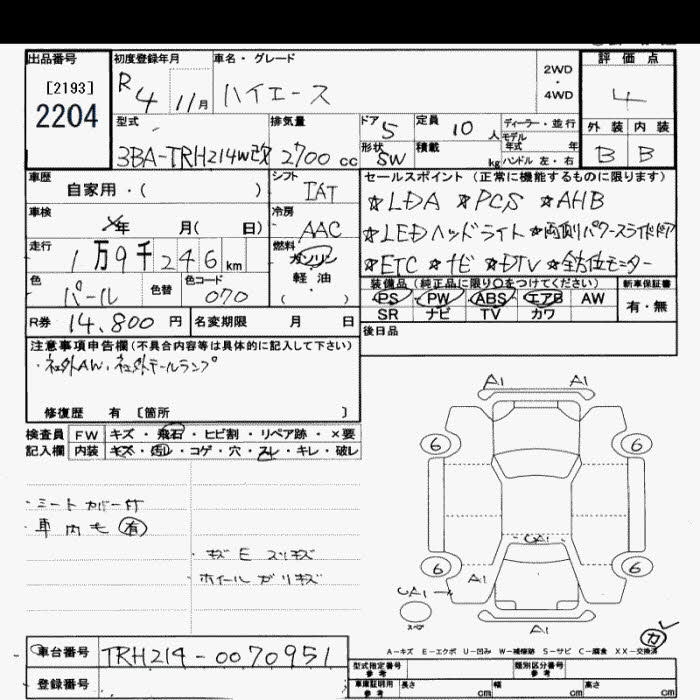 出品番号
[2193]
2204
初度登録年月
R4 11月
車名・グレード
ハイエース
2WD
・
4WD
評価点
4
外装 内装
B B
型式
3BA-TRH214W改
排気量
2700 cc
ドア 5
形状 SW
定員 10 人
積載 kg
ディーラー・並行
モデル
年式 年
ハンドル 左・右
車歴
自家用・( )
シフト
IAT
車検
年 月( 日)
冷房
AAC
走行
1万9千246km
燃料
ガソリン
軽油
( ・ )
色
パール
色替
色コード
070
R券 14,800 円
名変期限 月 日
セールスポイント(正常に機能するものに限ります)
☆LDA ☆PCS ☆AHB
☆LEDヘッドライト ☆両側パワースライドドア
☆ETC ☆ナビ ☆DTV ☆全方位モニター
装備品(純正品に限り○をつけてください)
PS PW ABS エアB AW
SR ナビ TV カワ
新車保証書
有・無
後日品
注意事項申告欄(不具合内容等は具体的に記入して下さい)
・社外AW、社外テールランプ
修復歴 有 [箇所 ]
検査員 FW キズ・飛石・ヒビ割・リペア跡・×要
記入欄 内装 キズ・汚レ・コゲ・穴・スレ・キレ・破レ
・シートカバー付
・車内モ 有
・キズ E スリキズ
ホイールガリキズ
A1 A1
6 6
UA1
6 6
UA1 A1
スペア
A1
カ
A-キズ E-エクボ U-凹み W-補修跡 S-サビ C-腐食 XX-交換済
車台番号 TRH214-0070951
登録番号
型式指定番号
参考
類別区分番号
参考
車庫証明用
参考
長さ cm 幅 cm 高さ cm